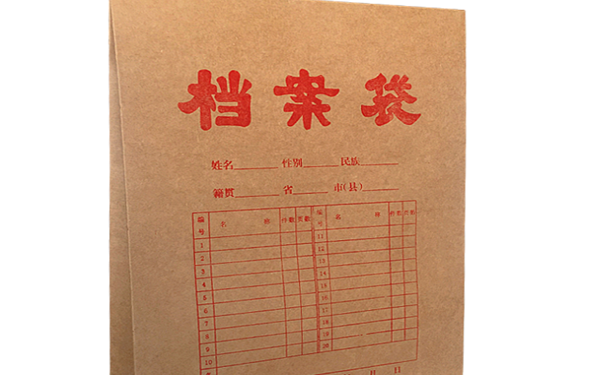 档案袋
姓名______性别______民族______
籍贯______省______市(县)______
编号 名 称 件数 页数 编号 名 称 件数 页数
1 11
2 12
3 13
4 14
5 15
6 16
7 17
8 18
9 19
10 20
月 日